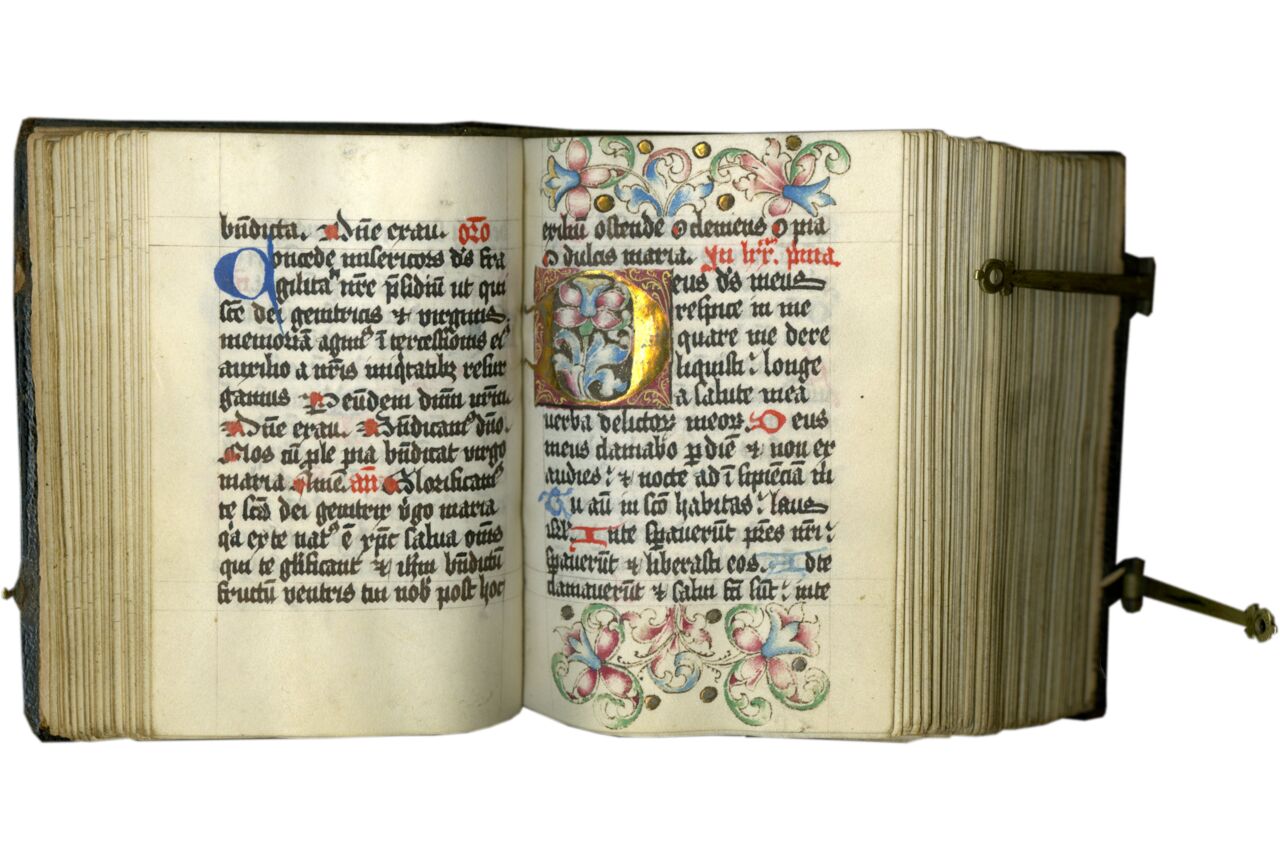 bn̄dicta. Dn̄e exau. or̄o
Concede misericors d's fra
gilita' nr̄e p̄sidiū ut qui
sc̄e dei genitricis ⁊ virginis
memoriā agim' ītercessionis ei'
auxilio a nr̄is iniqtatibꝫ resur
gamus P eūdem dnm̄ nr̄m
Dn̄e exau. Bn̄dicam' dn̄o.
Nos cū ple pia bn̄dicat virgo
maria an̄ Glorificam'
te sc̄a dei genitrix v'go maria
q'a ex te nat' ē xp̄c salua om̄s
qui te gl'ificant ⁊ bn̄dictū
fructū ventris tui nob' post hoc
exiliū ostende o clemens o pia
o dulcis maria. In
Deus d's meus
respice in me
quare me dere
liquisti: longe
a salute mea
uerba delictoꝝ meoꝝ. Deus
meus clamabo p diē ⁊ non ex
audies: ⁊ nocte ad ī sipiēciā m
Tu aū in sc̄o habitas: laus
isrl'. In te spaverūt p̄res nr̄i:
spaverūt ⁊ liberasti eos. Ad te
clamaverūt ⁊ salui fc̄i sūt: in te